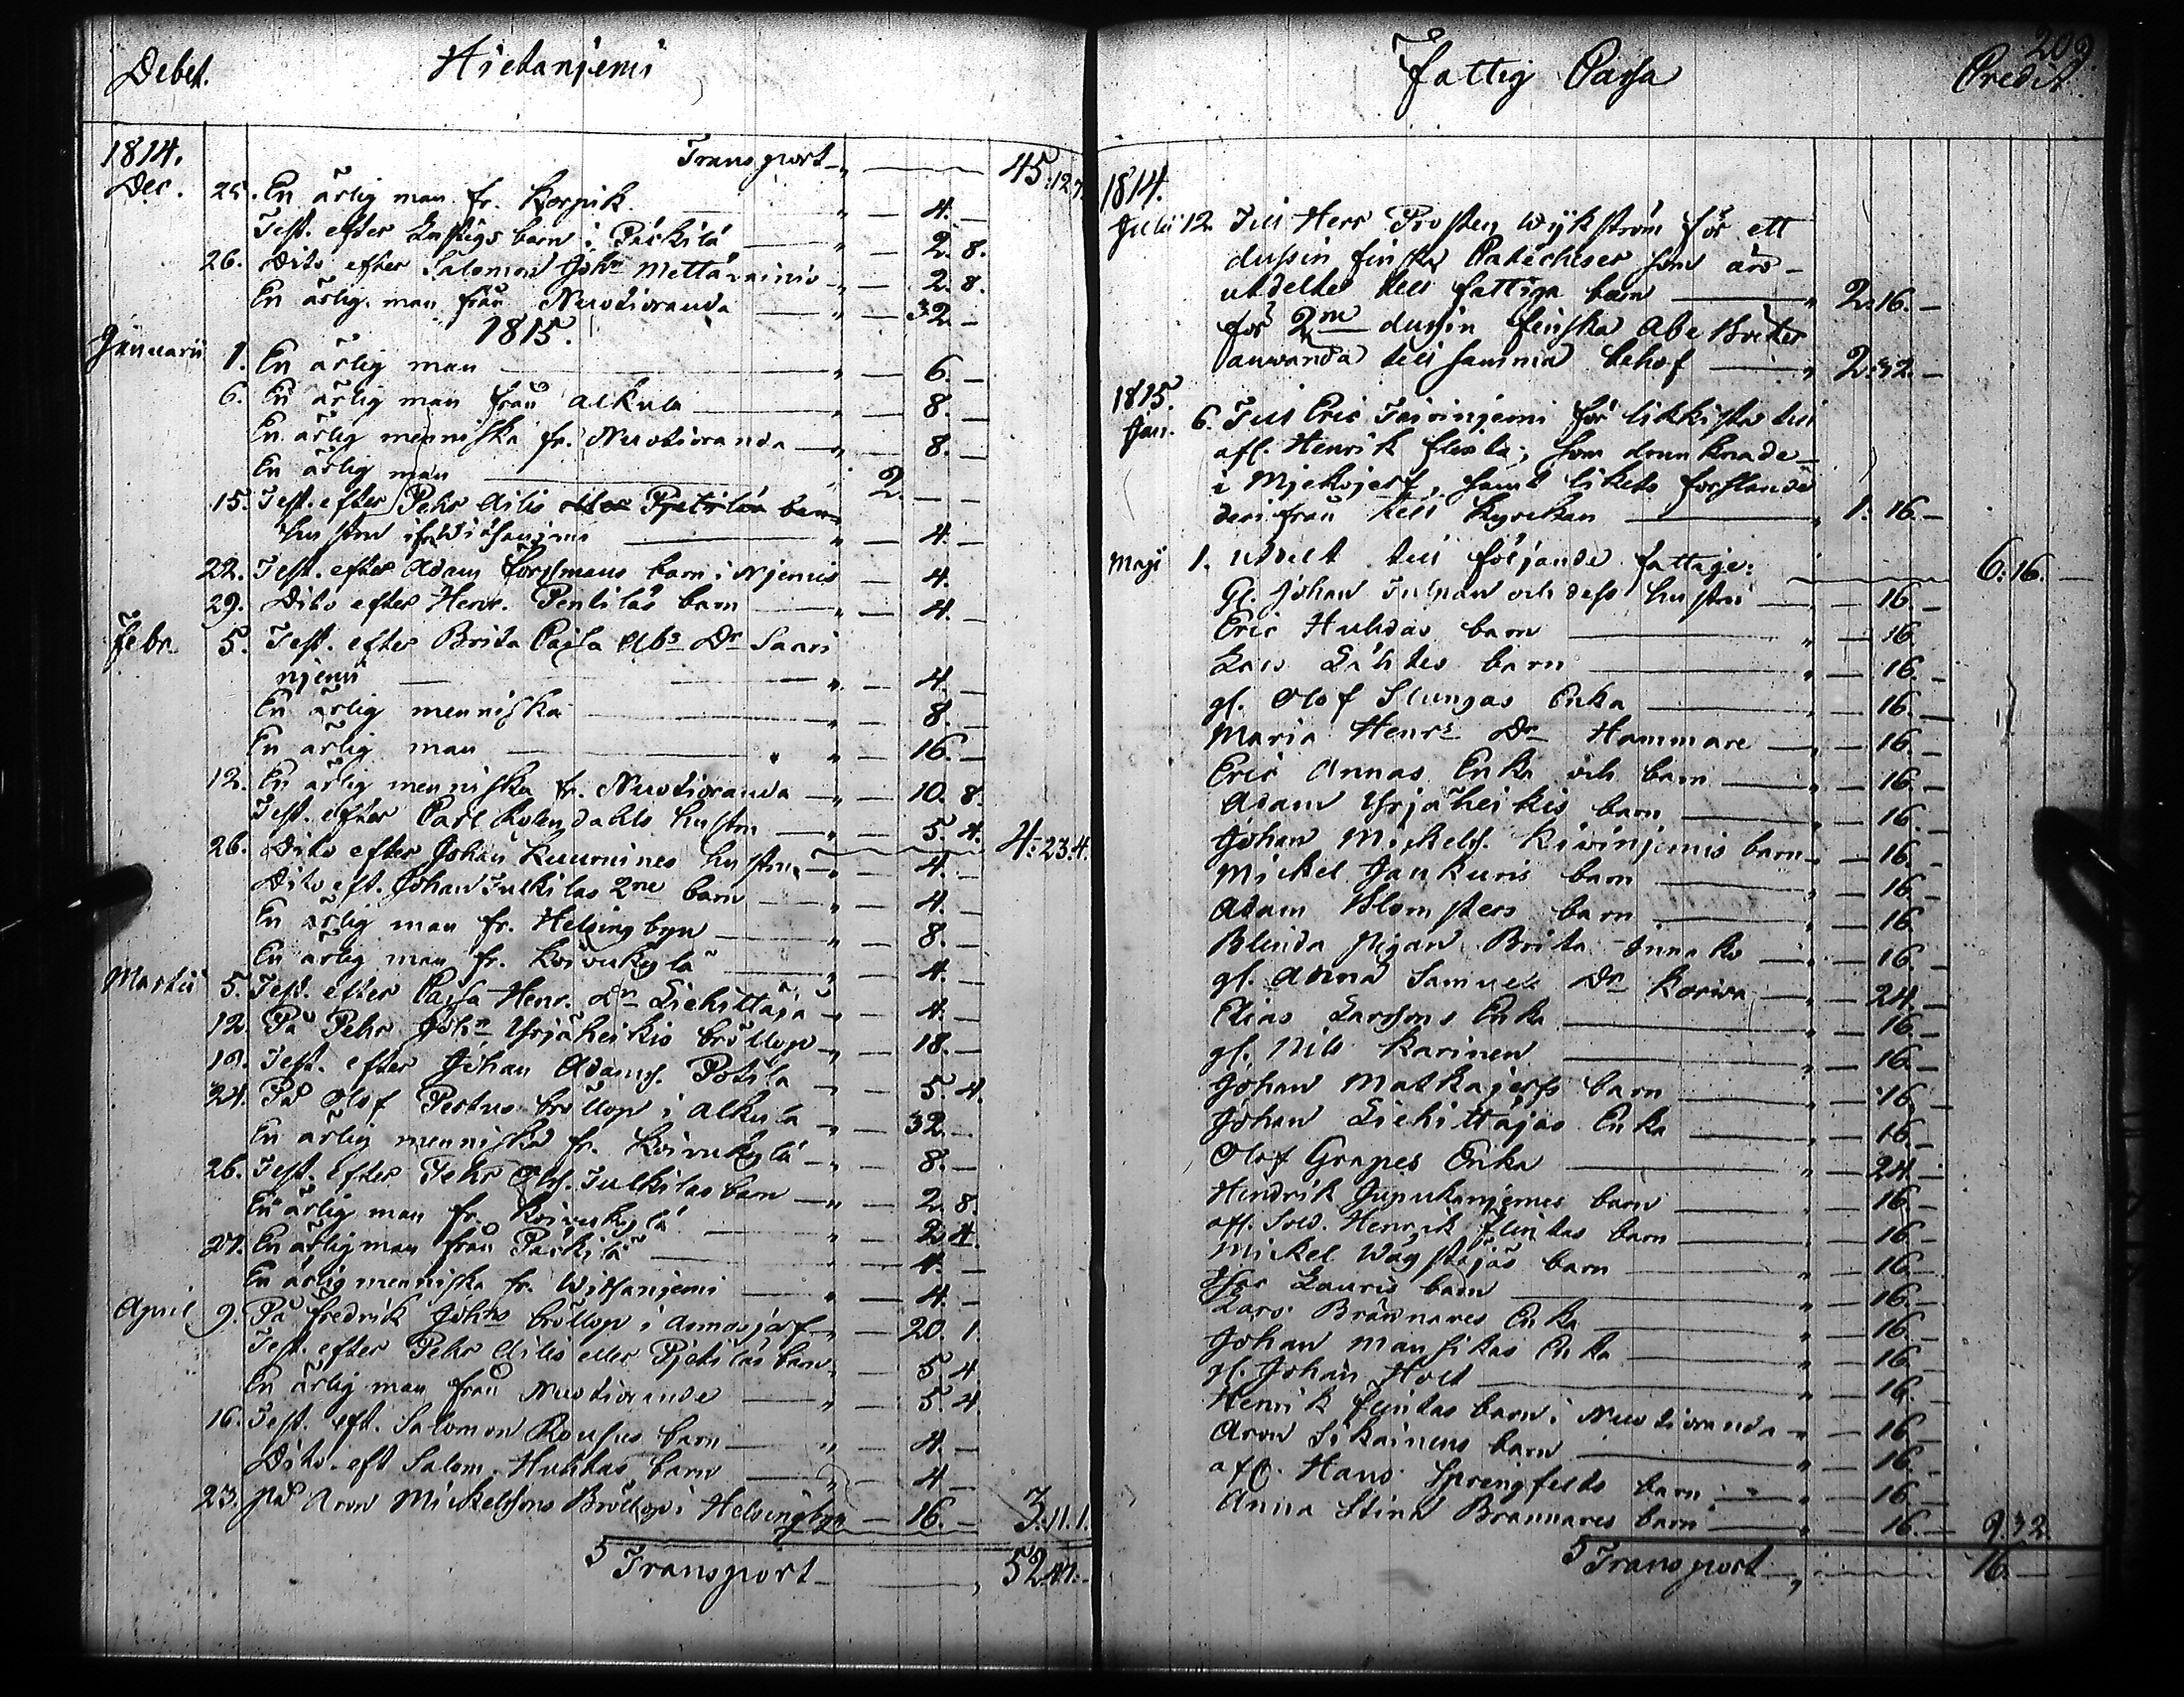 Debet. Hietaniemi
1814. Transport 45:12.7.
Dec. 25. En ärlig man fr. Korpik. 4.
Test. efter Lustigs barn i Päckilä 2. 8.
26. Dito efter Salomon Johs Mettävainio 2. 8.
En ärlig man från Nuotioranda 32.
1815.
Januarii 1. En ärlig man 6.
6. En ärlig man från Alkula 8.
En ärlig menniska fr. Nuotioranda 8.
En ärlig man 2.
15. Test. efter Pehr Ailis barn
hustru 4.
22. Test. efter Adam barn i Njemis 4.
29. Dito efter Henr. Pentiläs barn 4.
Febr. 5. Test. efter Brita Cajsa Abs Dr Saari
njemi 4.
En ärlig menniska 8.
En ärlig man 16.
12. En ärlig menniska fr. Nuotioranda 10. 8.
Test. efter Carl Rosendahls hustru 5. 4. 4:23:4.
26. Dito efter Johan Kuurnines hustru 4.
Dito eft. Johan Julkilas 2ne barn 4.
En ärlig man fr. Helsingbyn 8.
En ärlig man fr. Koivukylä 4.
Martii 5. Test. efter Cajsa Henr. Dr Liehittäjä 4.
12. På Pehr Johs Yrjäheikis bröllop 18.
19. Test. efter Johan Adams. Potila 5. 4.
24. På Olof Pertus bröllop i Alkula 32.
En ärlig menniska fr. Koivukylä 8.
26. Test. efter Pehr Olofs. Julkilas barn 2. 8.
En ärlig man fr. Koivukylä 2. 4.
27. En ärlig man från Päckilä 4.
En ärlig menniska fr. Witsanjemi 4.
April 9. På Fredrik Johns bröllop i Armasjärf 20. 1.
Test. efter Pehr Ailis eller Pjetiläs barn 5. 4.
En ärlig man från Nuotioranda 5. 4.
16. Test. eft. Salomon Rousus barn 4.
Dito eft Salom. Huhtas barn 4
23. På Aron Mickelssons Bröllop i Helsingbyn 16. 3:11.1.
Transport 52:
209.
Fattig Cassa Credit
1814.
Julii 12. Till Herr Prosten Wykström för ett
dussin finska Catecheser som äro
utdelte till fattiga barn 2:16.
för 2ne dussin finska Abc Böcker
anwända till samma behof 2:32.
1815.
Jan. 6. Till Eric Taivinjemi för likkista till
afl. Henrik Flinta, som drunknade
i Mjekojerf, samt likets forslande
derifrån till Kyrckan 1. 16. 6:16.
Maji 1. utdelt till följande fattige:
Gl. Johan Julnau och dess hustru 16.
Eric Huhdas barn 16.
Lars Lähtes barn 16.
gl. Olof Slungas Enka 16.
Maria Henrs Dr Hammare 16.
Eric Annas Enka och barn 16.
Adam Yrjäheikis barn 16.
Johan Mickels. Kivinjemis barn 16.
Mickel Jankuris barn 16.
Adam Blomsters barn 16.
Blinda pigan Brita Innako 16.
gl. Anna Samuels Dr Korwa 24.
Elias Larssons Enka 16.
gl. Nils Karinen 16.
Johan Matkajerfs barn 16.
Johan Liehittäjäs Enka 16.
Olof Grapes Enka 24.
Hindrik Jupukanjemes barn 16.
afl. Sold. Henrik Flintas barn 16.
Mickel Wägstajäs barn 16.
Isac Lauris barn 16.
Lars Brännares Enka 16.
Johan Mansikas Enka 16.
gl. Johan Holt 16.
Henrik Flintas barn i Nuotioranda 16.
Aron Sikainens barn 16.
afl. Hans Springfelts barn 16.
Anna Stina Brännares barn 16. 9.32.
Transport 16.